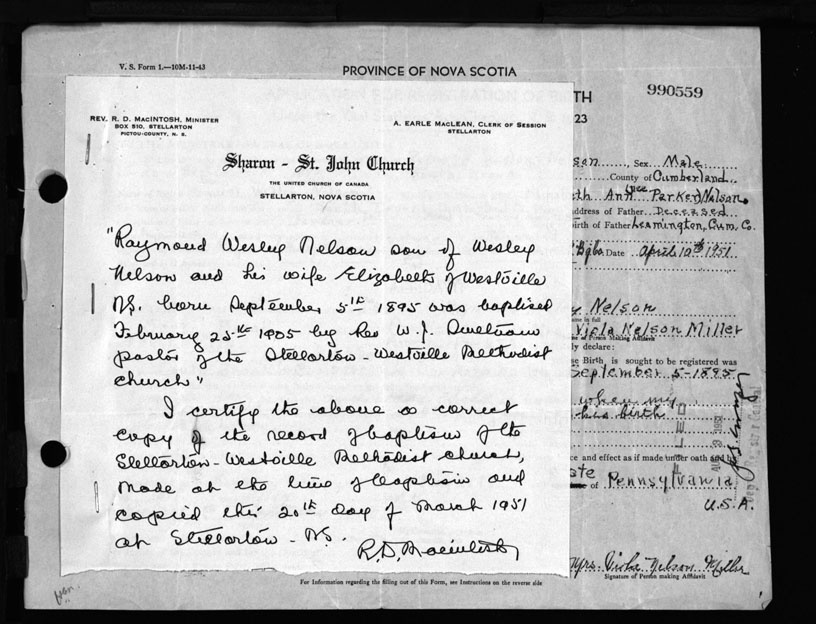 V. S. Form 1.—10M-11-43
PROVINCE OF NOVA SCOTIA
TH
990559
23
REV. R. D. MACINTOSH, MINISTER
BOX 510, STELLARTON
PICTOU-COUNTY, N. S.
A. EARLE MACLEAN, CLERK OF SESSION
STELLARTON
Sharon - St. John Church
THE UNITED CHURCH OF CANADA
STELLARTON, NOVA SCOTIA
"Raymond Wesley Nelson son of Wesley
Nelson and his wife Elizabeth of Westville
NS. born September 5th 1895 was baptised
February 25th 1905 by Rev W. J.
pastor of the Stellarton-Westville Methodist
church"
I certify the above a correct
copy of the record of baptism of the
Stellarton-Westville Methodist church,
made at the time of baptism and
copied this 20th day of March 1951
at Stellarton - NS.
R. D. MacIntosh
son, Sex Male
County of Cumberland
eth Ann (nee Parker) Nelson
ddress of Father Deceased
irth of Father Leamington, Cum. Co.
Date April 10th 1951
y Nelson
ame in full
Viola Nelson Miller
e of Person Making Affidavit
ly declare:
se Birth is sought to be registered was
September 5-1895
when my
his birth
ce and effect as if made under oath and by
ate
e of Pennsylvania
U.S.A.
FILED
Mrs. Viola Nelson Miller
Signature of Person making Affidavit
For Information regarding the filling out of this Form, see Instructions on the reverse side